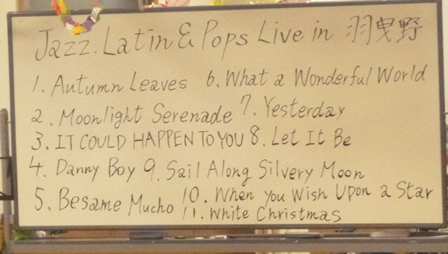 Jazz. Latin & Pops Live in 羽曳野
1. Autumn Leaves
2. Moonlight Serenade
3. IT COULD HAPPEN TO YOU
4. Danny Boy
5. Besame Mucho
6. What a Wonderful World
7. Yesterday
8. Let It Be
9. Sail Along Silvery Moon
10. When you Wish Upon a Star
11. White Christmas